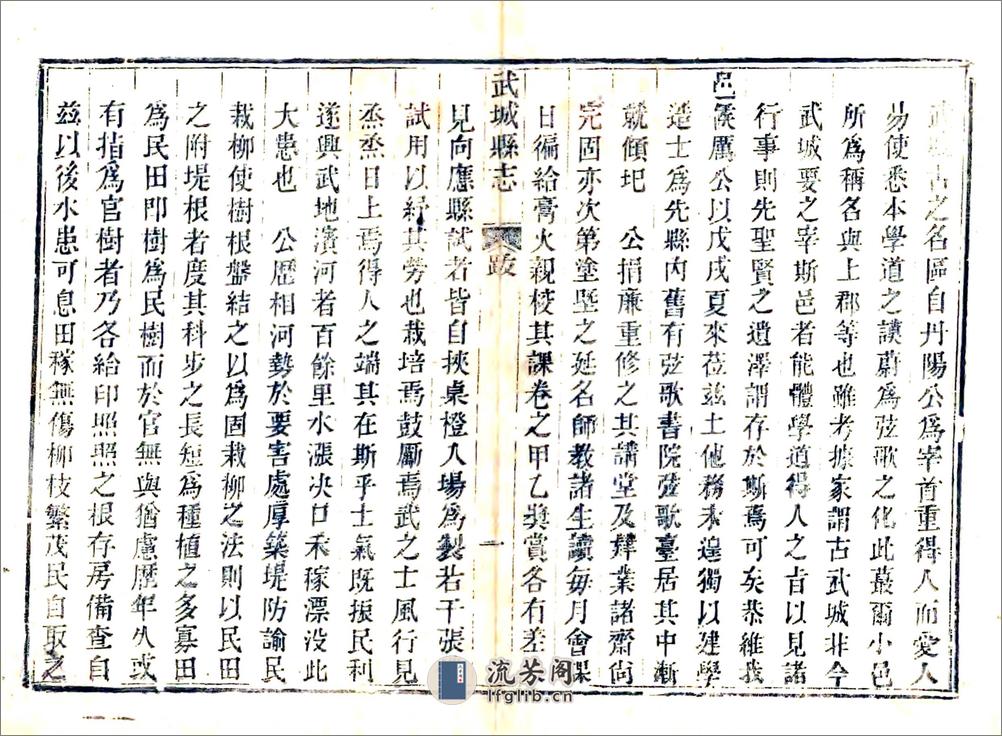 武城古之名區自丹陽公爲宰首重得人而愛人
易使悉本學道之謨蔚爲弦歌之化此蕞爾小邑
所爲稱名與上郡等也雖考據家謂古武城非今
武城要之宰斯邑者能體學道得人之旨以見諸
行事則先聖賢之遺澤謂存於斯焉可矣恭維我
邑侯厲公以戊戌夏來莅兹土他務未遑獨以建學
造士爲先縣內舊有弦歌書院弦歌臺居其中漸
就傾圯 公捐廉重修之其講堂及肄業諸齋尙
完固亦次第塗墍之延名師教諸生讀每月會課
日徧給膏火親校其課卷之甲乙奬賞各有差
武城縣志 跋 一
見向應縣試者皆自挾桌櫈入場爲製若干張
試用以紓其勞也栽培焉鼓勵焉武之士風行見
烝烝日上焉得人之端其在斯乎士氣既振民利
遂興武地濱河者百餘里水漲决口禾稼漂没此
大患也 公歷相河勢於要害處厚築堤防諭民
栽柳使樹根盤結之以爲固栽柳之法則以民田
之附堤根者度其科步之長短爲種植之多寡田
爲民田即樹爲民樹而於官無與猶慮歷年久或
有指爲官樹者乃各給印照照之根存房備查自
兹以後水患可息田稼無傷柳枝繁茂民自取之
流芳阁
lfglib.com